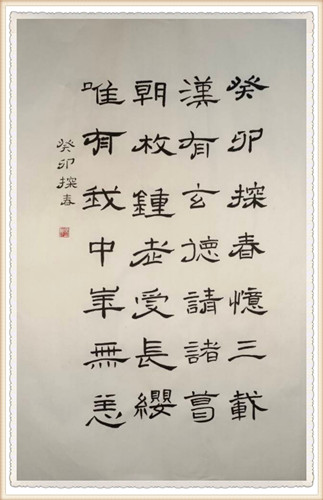 癸卯探春憶三載
漢有玄德請諸葛
朝枚鍾老受長纓
唯有我中華無恙
癸卯探春